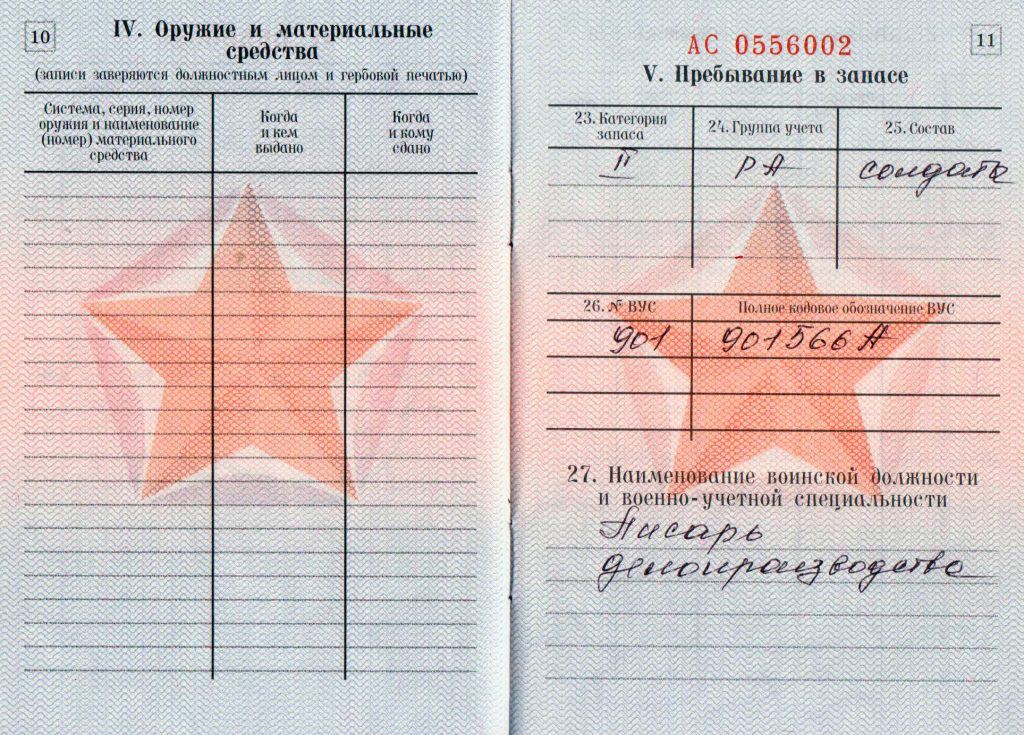 10
IV. Оружие и материальные
средства
(записи заверяются должностным лицом и гербовой печатью)
Система, серия, номер
оружия и наименование
(номер) материального
средства
Когда
и кем
выдано
Когда
и кому
сдано
11
АС 0556002
V. Пребывание в запасе
23. Категория
запаса
24. Группа учета
25. Состав
II
РА
солдаты
26. № ВУС
Полное кодовое обозначение ВУС
901
901566А
27. Наименование воинской должности
и военно-учетной специальности
Писарь
делопроизводства